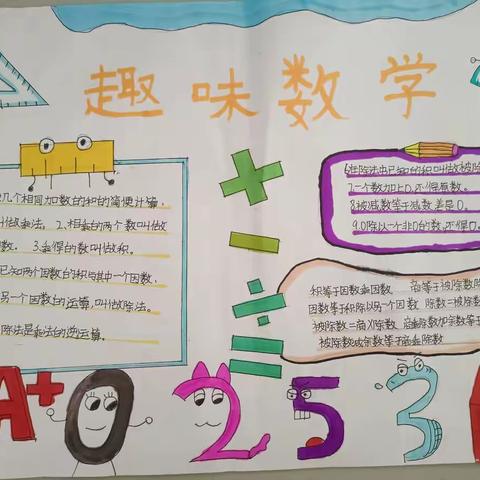 趣味数学
几个相同加数的和的简便计算,
叫做乘法。2、相乘的两个数叫做
因数。3.乘得的数叫做积。
已知两个因数的积与其中一个因数,
另一个因数的运算,叫做除法。
除法是乘法的逆运算。
6在除法中已知的积叫做被除
7一个数加上0,还得原数。
8被减数等于减数差是0。
9.0除以一个非0的数,还得0。
积等于因数乘因数 商等于被除数除
因数等于积除以另一个因数 除数=被除数
被除数=商X除数
被除数减余数等于商乘除数
A+
0
2
5
3